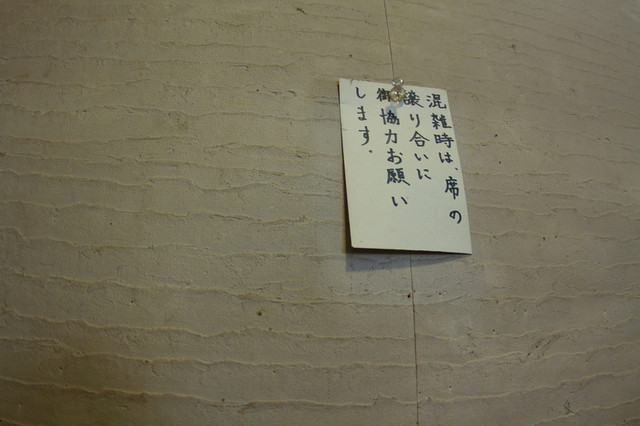 混雑時は、席の
譲り合いに
御協力お願い
します。